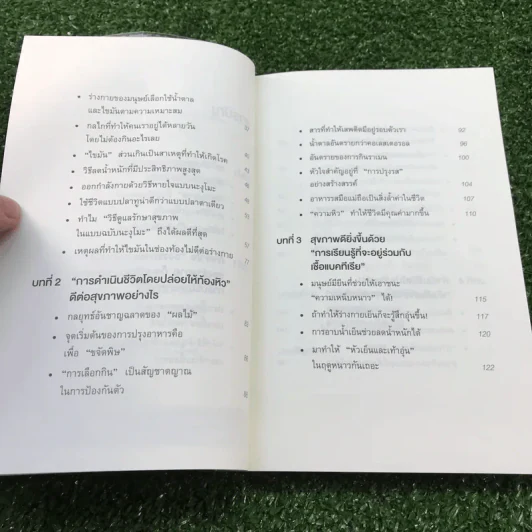 • ร่างกายของมนุษย์เลือกใช้น้ำตาล
และไขมันตามความเหมาะสม
• กลไกที่ทำให้คนเราอยู่ได้หลายวัน
โดยไม่ต้องกินอะไรเลย
• “ไขมัน” ส่วนเกินเป็นสาเหตุที่ทำให้เกิดโรค
• วิธีลดน้ำหนักที่มีประสิทธิภาพสูงสุด
• ออกกำลังกายด้วยวิธีหายใจแบบนะงุโมะ
• ใช้ชีวิตแบบปลาทูน่าดีกว่าแบบปลาตาเดียว
• ทำไม “วิธีดูแลรักษาสุขภาพ
ในแบบฉบับนะงุโมะ” ถึงได้ผลดีที่สุด
• เหตุผลที่ทำให้ไขมันในช่องท้องไม่ดีต่อร่างกาย 77
บทที่ 2 “การดำเนินชีวิตโดยปล่อยให้ท้องหิว”
ดีต่อสุขภาพอย่างไร
• กลยุทธ์อันชาญฉลาดของ “ผลไม้”
• จุดเริ่มต้นของการปรุงอาหารคือ
เพื่อ “ขจัดพิษ”
• “การเลือกกิน” เป็นสัญชาตญาณ
ในการป้องกันตัว
• สารที่ทำให้เสพติดมีอยู่รอบตัวเรา 92
• น้ำตาลอันตรายกว่าคอเลสเตอรอล 96
• อันตรายของการกินราเมน 100
• หัวใจสำคัญอยู่ที่ “การปรุงรส”
อย่างสร้างสรรค์ 104
• อาหารรสมือแม่ถือเป็นสิ่งล้ำค่าในชีวิต 107
• “ความหิว” ทำให้ชีวิตมีคุณค่ามากขึ้น 110
บทที่ 3 สุขภาพดียิ่งขึ้นด้วย
“การเรียนรู้ที่จะอยู่ร่วมกับ
เชื้อแบคทีเรีย”
• มนุษย์มียีนที่ช่วยให้เอาชนะ
“ความเหน็บหนาว” ได้! 115
• ถ้าทำให้ร่างกายเย็นก็จะรู้สึกอุ่นขึ้น! 117
• การอาบน้ำเย็นช่วยลดน้ำหนักได้ 120
• มาทำให้ “หัวเย็นและเท้าอุ่น”
ในฤดูหนาวกันเถอะ 122